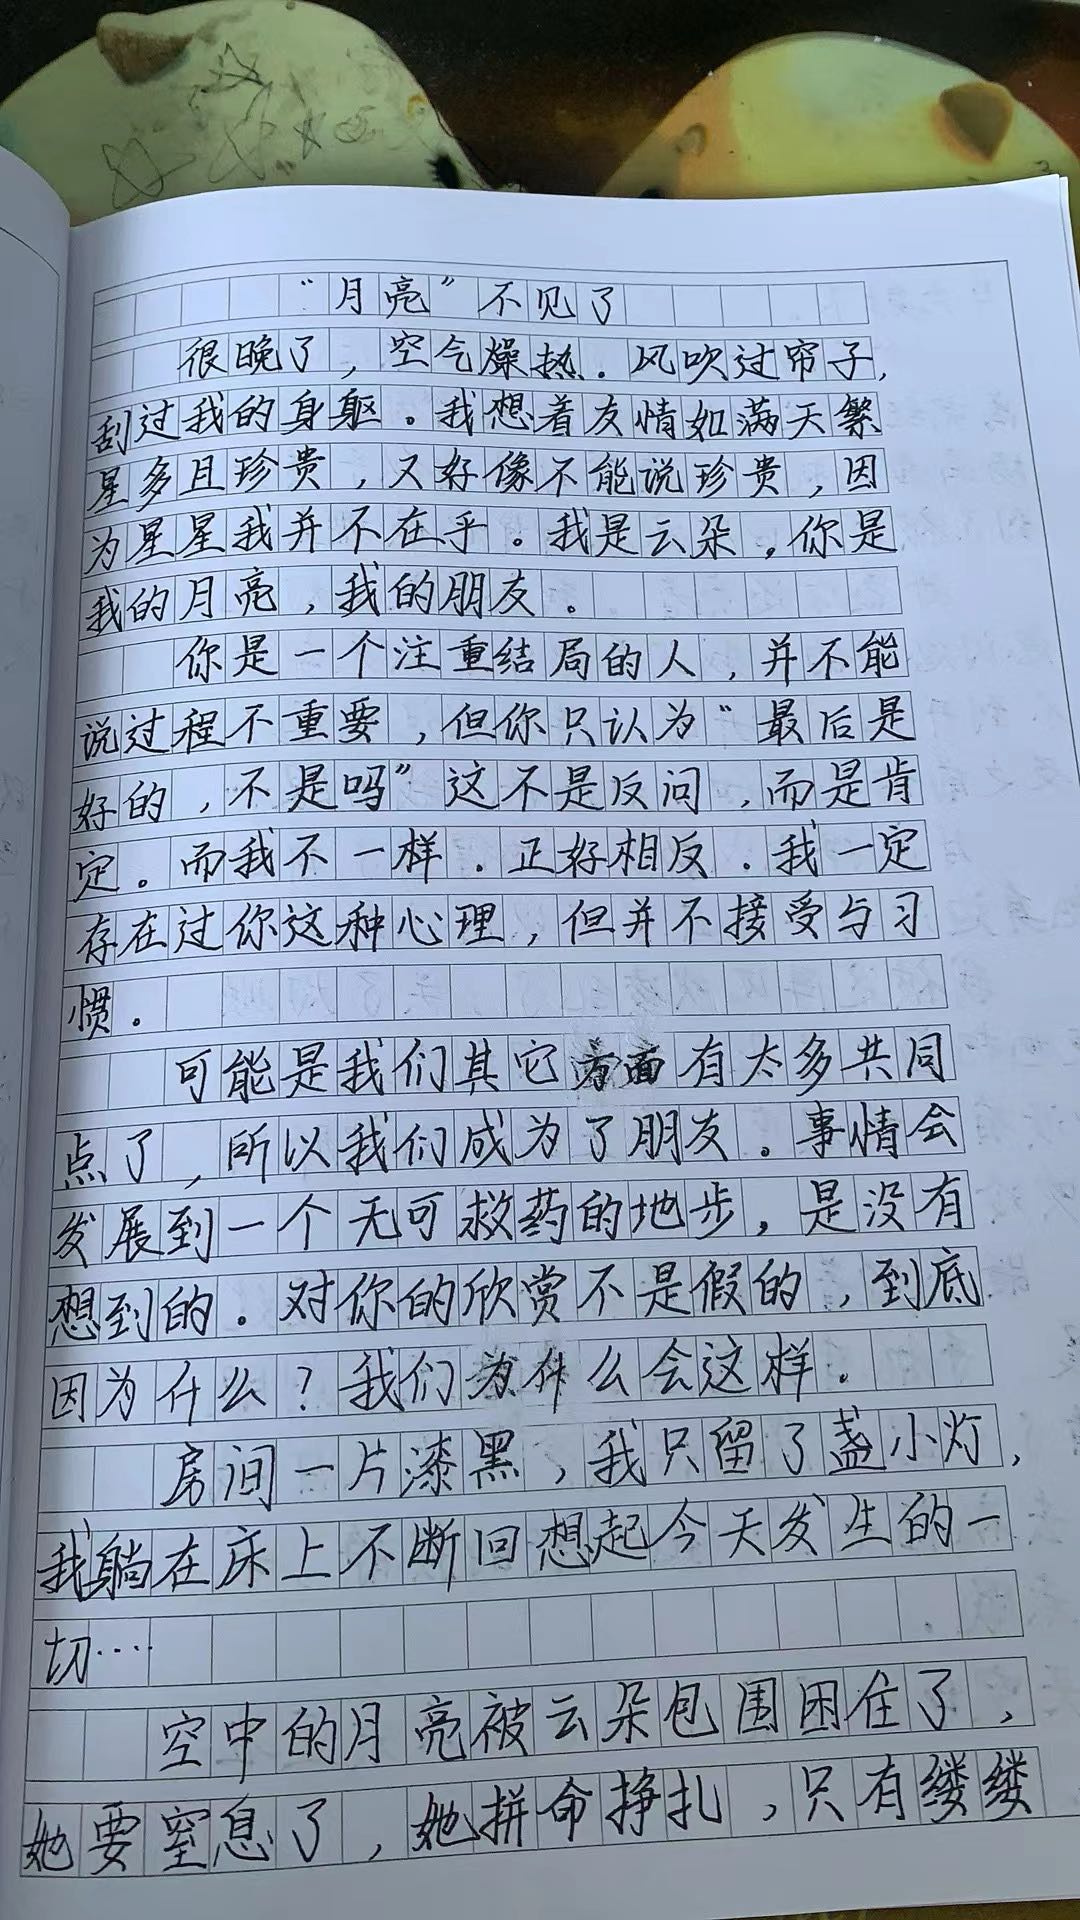 “月亮”不见了
很晚了，空气燥热．风吹过帘子，
刮过我的身躯。我想着友情如满天繁
星多且珍贵，又好像不能说珍贵，因
为星星我并不在乎。我是云朵，你是
我的月亮，我的朋友。
你是一个注重结局的人，并不能
说过程不重要，但你只认为“最后是
好的，不是吗”这不是反问，而是肯
定。而我不一样．正好相反．我一定
存在过你这种心理，但并不接受与习
惯。
可能是我们其它方面有太多共同
点了，所以我们成为了朋友。事情会
发展到一个无可救药的地步，是没有
想到的。对你的欣赏不是假的，到底
因为什么？我们为什么会这样．
房间一片漆黑，我只留了盏小灯，
我躺在床上不断回想起今天发生的一
切····
空中的月亮被云朵包围困住了，
她要窒息了，她拼命挣扎，只有缕缕